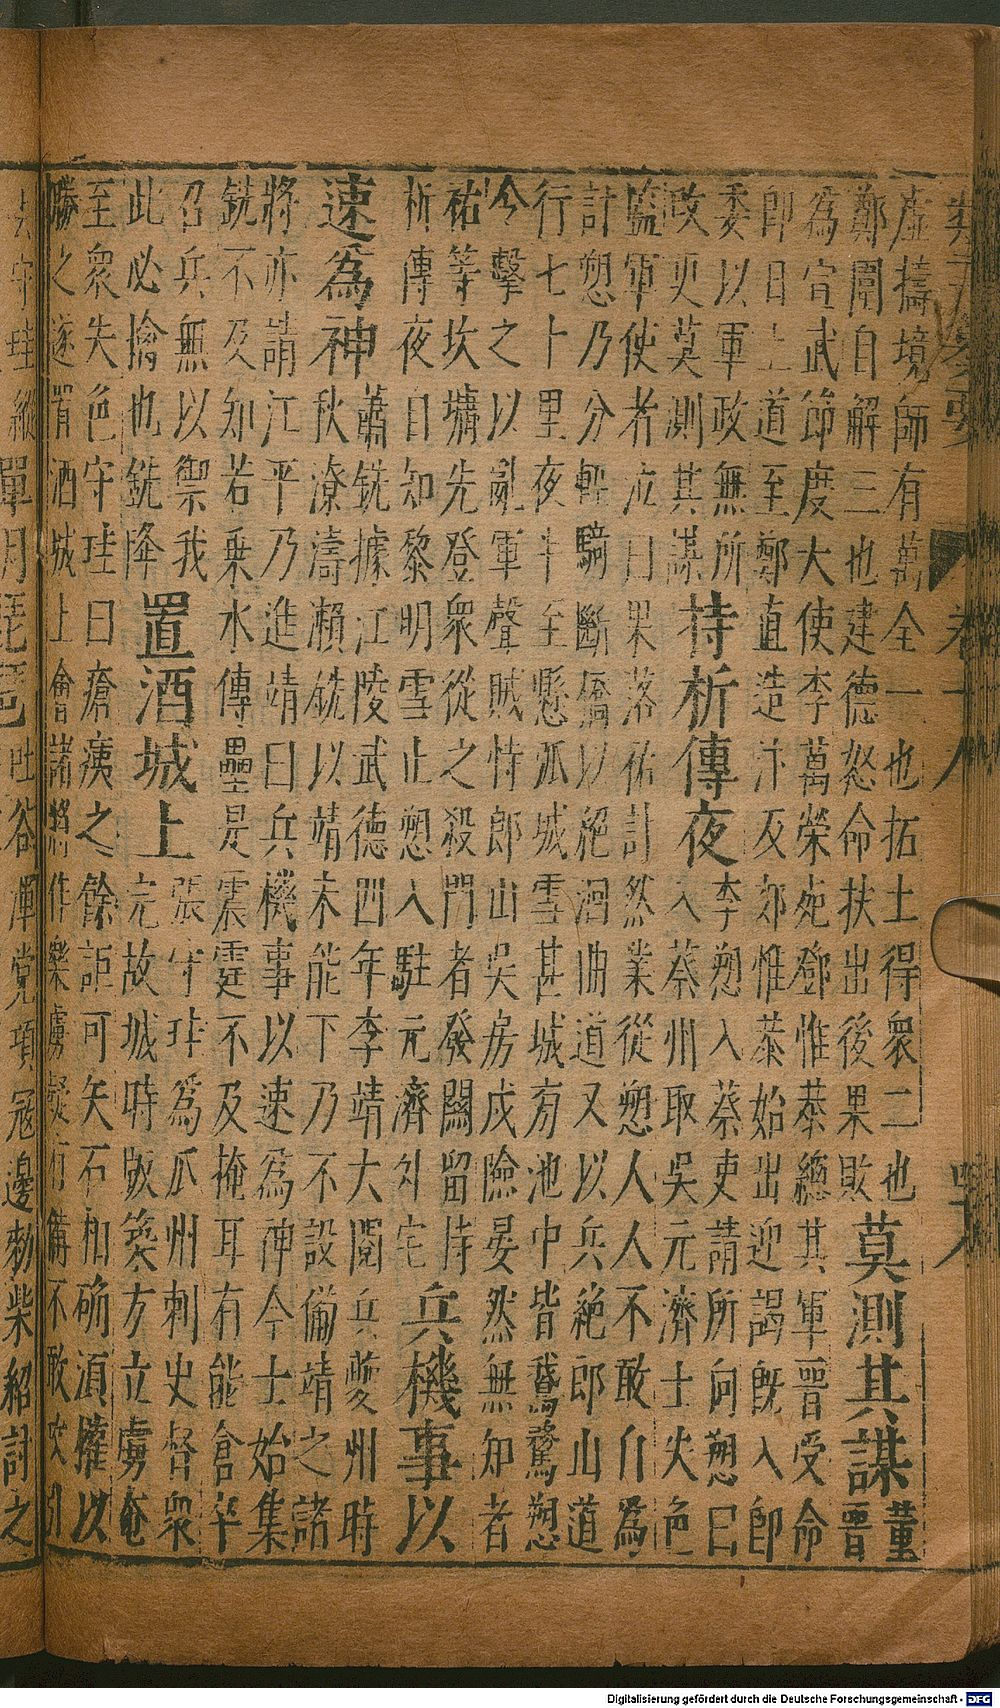 虛擣境師有萬全一也拓土得衆二也
鄭圍自解三也建德怒命扶出後果敗
莫測其謀
董晋
爲宣武節度大使李萬榮死鄧惟恭總其軍晋受命
即日上道至鄭直造汴及郊惟恭始出迎謁既入即
委以軍政無所
政更莫測其謀
持析傳夜
李愬入蔡吏請所向愬曰
入蔡州取吳元濟士失色
監軍使者泣曰果落佑計然業從愬人人不敢自爲
計愬乃分輕騎斷橋以絕洄曲道又以兵絶郎山道
行七十里夜半至懸瓠城雪甚城旁池中皆鵞鶩愬
令擊之以亂軍聲賊恃郎山吳房戍險晏然無知者
祐等坎墉先登衆從之殺門者發關留持
析傳夜自知黎明雪止愬入駐元濟外宅
兵機事以
速爲神
蕭銑據江陵武德四年李靖大閱兵夔州時
秋潦濤瀨銑以靖未能下乃不設備靖之諸
將亦請江平乃進靖曰兵機事以速爲神今士始集
銑不及知若乗水傳壘是震霆不及掩耳有能倉卒
召兵無以禦我
此必擒也銑降
置酒城上
張守珪爲瓜州刺史督衆
完故城時版築方立虜奄
至衆失色守珪曰瘡痍之餘詎可矢石相确湏權以
勝之遂置酒城上會諸將作樂虜疑有備不敢攻引
去守珪縱
彈胡琵琶
吐谷渾党項冦邊勑柴紹討之
卷十八
Digitalisierung gefördert durch die Deutsche Forschungsgemeinschaft - DFG